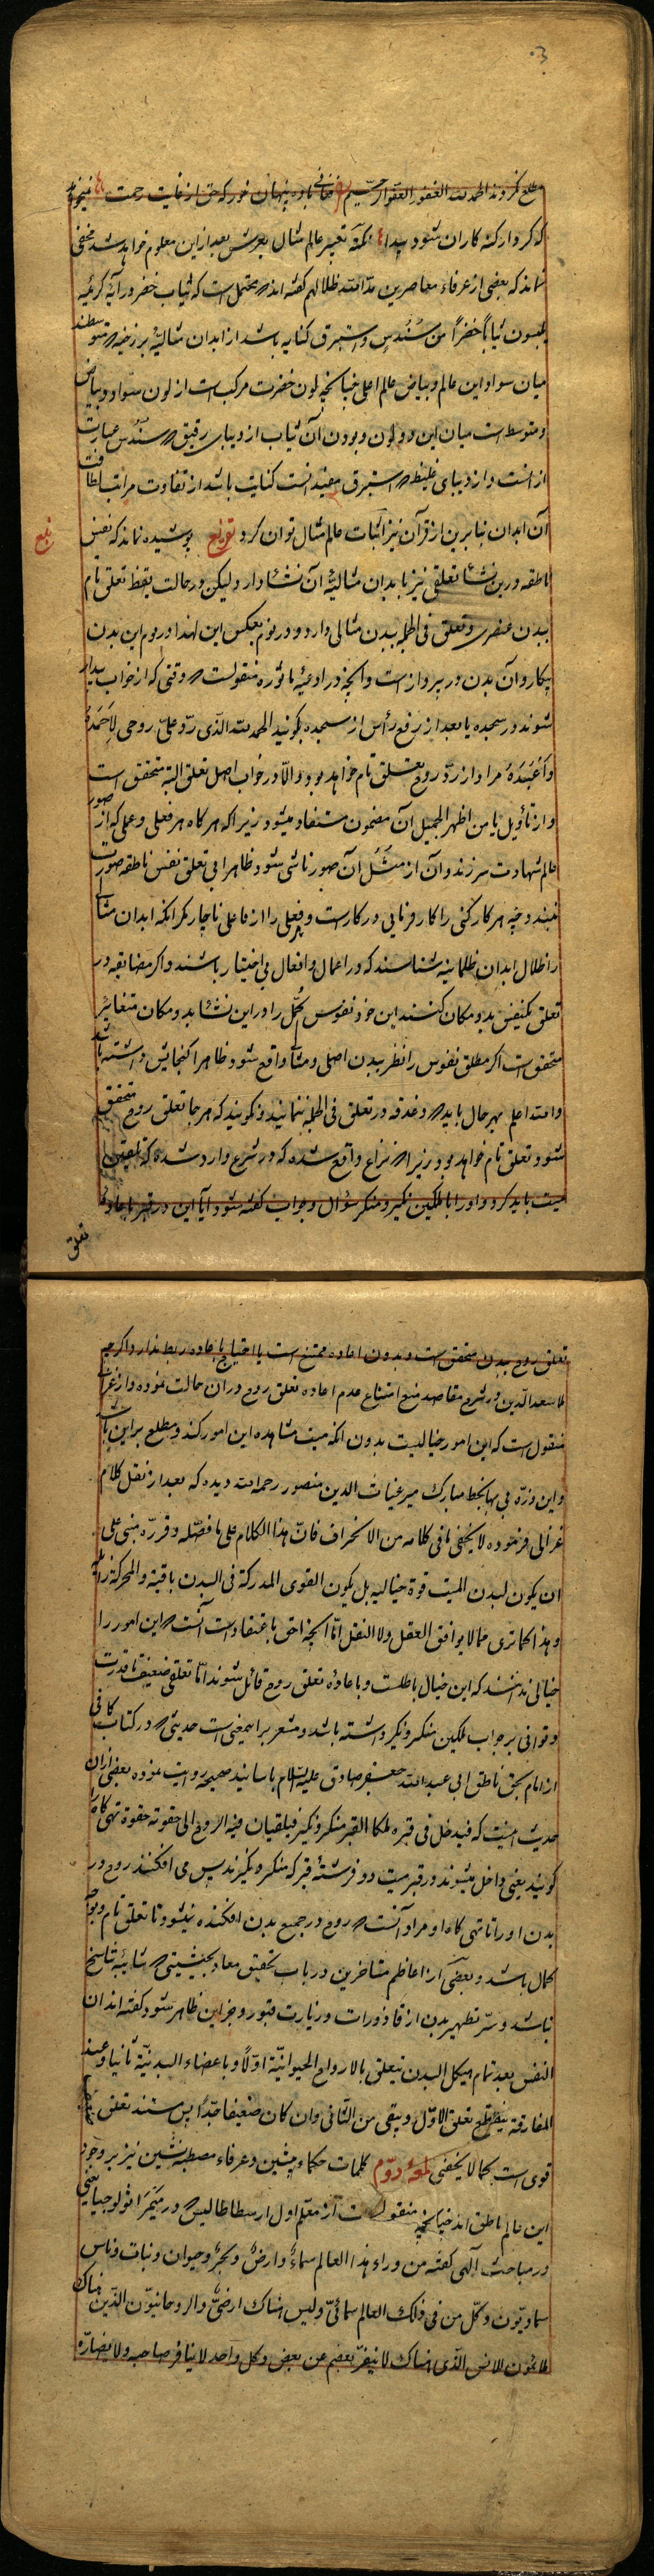 مطلع نکردند الحمدلله الغفور العفو الرحیم فغانی باده پنهان خور که حق از غایت رحمت نمیخواهد
که کردار گنه کاران شود پیدا نکته تعبیر عالم مثال بعرش بعد از این معلوم خواهد شد مخفی
نماند که بعضی از عرفاء معاصرین مد الله ظلالهم گفته اند محتمل است که ثیاب خضر در آیهٔ کریمه
یلبسون ثیاباً خضراً من سُندُسٍ و استبرق کنایه باشد از ابدان مثالیهٔ برزخیه متوسطند
میان سواد این عالم و بیاض عالم اعلی چنانچه لون خضرت مرکب است از لون سواد و بیاض
و متوسط است میان این دو لون و بودن آن ثیاب از دیبای رقیق سندس عبارت
از انست و از دیبای غلیظ استبرق مفید انست کنایت باشد از تفاوت مراتب لطافت
آن ابدان بنابرین از قرآن نیز اثبات عالم مثال توان کرد پوشیده نماند که نفس
ناطقه درین نشأ تعلقی نیز بابدان مثالیهٔ آن نشأ دارد لیکن در حالت یقظه تعلق تام
ببدن عنصری و تعلق فی الجمله ببدن مثالی دارد و در نوم بعکس این لهذا در نوم این بدن
بیکار و آن بدن در پرواز است و آنچه در ادعیهٔ ماثوره منقولست وقتی که از خواب بیدار
شوند در سجده یا بعد از رفع رأس از سجده بگویند الحمدلله الذی ردّ علیّ روحی لاَحمَدَهُ
وَاَعبُدَهُ مراد از ردّ روح تعلق تام خواهد بود والّا در خواب اصل تعلق البته متحقق است
و از تأویل یا من اظهر الجمیل آن مضمون مستفاد میشود زیرا که هر گاه هر فعلی و عملی که از صور
عالم شهادت سرزند و آن از مُثُل آن صور ناشی شود ظاهرا بی تعلق نفس ناطقه صورت
نبندد چه هر کارکنی را کارفرمایی در کار است و فعلی را از فاعلی ناچار مگر انکه ابدان مثالی
را ظلال ابدان ظلمانیه شناسند که در اعمال و افعال بی اختیار باشند و اگر مضایقه در
تعلق یکنفس بدو مکان کنند این خود نفوس کُمّل را در این نشأ بدو مکان متغایر
متحقق است اگر مطلق نفوس را نظر ببدن اصلی و مثالی واقع شود ظاهرا گنجایش داشته باشد
والله اعلم بهر حال باید دغدغه در تعلق فی الجمله ننمایند و گویند که هر جا تعلق روح متحقق
شود تعلق تام خواهد بود زیرا نزاع واقع شده که در شرع وارد شده که تلقین
میت باید کرد و او را با ملکین نکیر و منکر سؤال و جواب گفته شود آیا این در قبر باعادهٔ
تعلق
تعلق روح ببدن متحقق است و بدون اعاده ممتنع است یا احتیاج باعاده ربط ندارد اگرچه
ملا سعدالدین در شرح مقاصد منع امتناع عدم اعاده تعلق روح در ان حالت نموده و از غزالی
منقول است که این امور خیالیست بدون انکه میت مشاهده این امور کند و مطلع بر این باشد
و این ذرّه بی بها بخط مبارک میر غیاث الدین منصور رحمه الله دیده که بعد از نقل کلام
غزالی فرموده لا یخفی ما فی کلامه من الانحراف فانّ هذا الکلام علی ما فصّله و قرره مبنی علی
ان یکون لبدن المیت قوة خیالیه بل یکون القوی المدرکة فی البدن باقیة و المحرکة زائله
و هذا کما تری مما لا یوافق العقل ولا النقل امّا آنچه احق باعتقاد است آنست این امور را
خیالی ندانند که این خیال باطلست و باعادهٔ تعلق روح قائل شوند امّا تعلقی ضعیف تا قدرت
و توانی بر جواب ملکین منکر و نکیر داشته باشد و مشعر بر اینمعنی است حدیثی در کتاب کافی
از امام بحق ناطق ابی عبدالله جعفر صادق علیه السلام باسانید صحیحه روایت نموده بعضی از ان
حدیث اینست که فیدخل فی قبره ملکا القبر منکر و نکیر فیلقیان فیه الروح الی حقوته حقوة تهی گاه را
گویند یعنی داخل میشوند در قبر میت دو فرشتهٔ قبر که منکر و نکیرند پس می افکنند روح در
بدن او را تا تهی گاه او مراد آنست روح در جمیع بدن افکنده نمیشود تا تعلق تام و بوجه
کمال باشد و بعضی از اعاظم متاخرین در باب تحقیق معاد بحیثیتی شایبهٔ تناسخ
نباشد و سرّ تطهیر بدن از قاذورات و زیارت قبور و جز این ظاهر شود گفته اند ان
النفس بعد تمام هیکل البدن یتعلق بالارواح الحیوانیّه اوّلاً و باعضاء البدنیّة ثانیا و عند
المفارقة ینقطع تعلق الاوّل و یبقی من الثّانی و ان کان ضعیفا جدّا پس سند تعلق
قوی است کما لا یخفی لمعهٔ دوّم کلمات حکماء پیشین و عرفاء مصطبه نشین نیز بر وجود
این عالم ناطق اند چنانچه منقول است از معلّم اول ارسطاطالیس در میَمَر اثولوجیا یعنی
در مباحث الهی گفته من وراء هذا العالم سماءٌ و ارضٌ و بحرٌ و حیوان و نبات و ناس
سماویّون و کل من فی ذلک العالم سمائیّ و لیس هناک ارضیٌّ و الروحانیّون الذین هناک
ملائمون للانس الذی هناک لا ینفر بعضهم عن بعض و کل واحد لا ینافر صاحبه و لا یضارّه